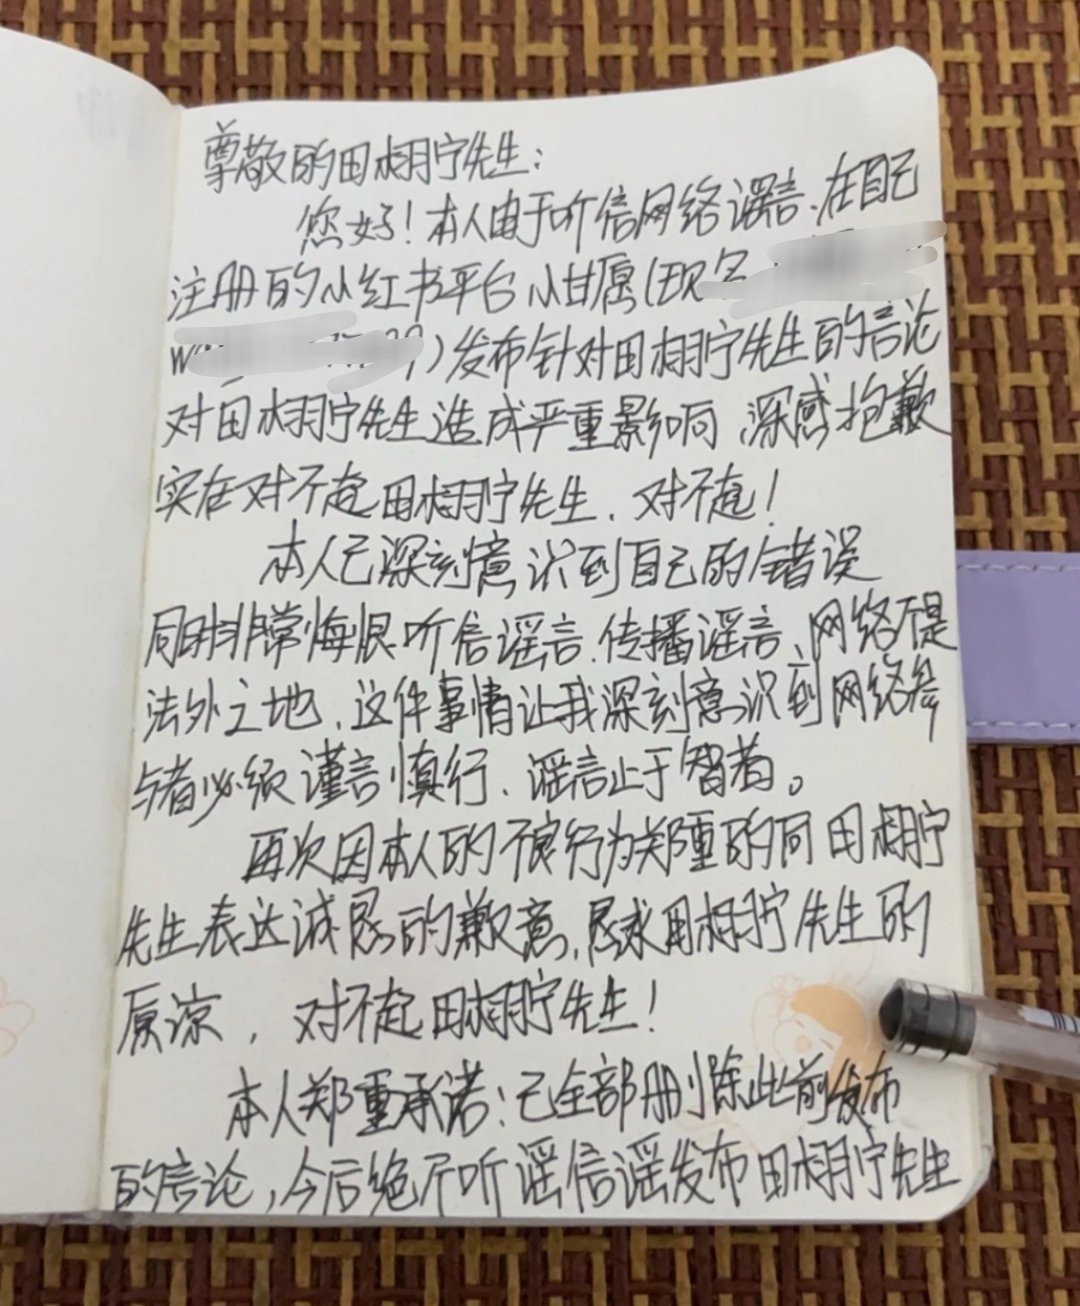 尊敬的田栩宁先生：
您好！本人由于听信网络谣言、在自己
注册的小红书平台小甘愿(现名
)发布针对田栩宁先生的言论
对田栩宁先生造成严重影响、深感抱歉
实在对不起田栩宁先生、对不起！
本人已深刻意识到自己的错误
同时非常悔恨听信谣言、传播谣言、网络不是
法外之地、这件事情让我深刻意识到网络参
与者必须谨言慎行、谣言止于智者。
再次因本人的不良行为郑重的向田栩宁
先生表达诚恳的歉意，恳求田栩宁先生的
原谅，对不起田栩宁先生！
本人郑重承诺：已全部删除此前发布
的言论，今后绝不听谣信谣发布田栩宁先生